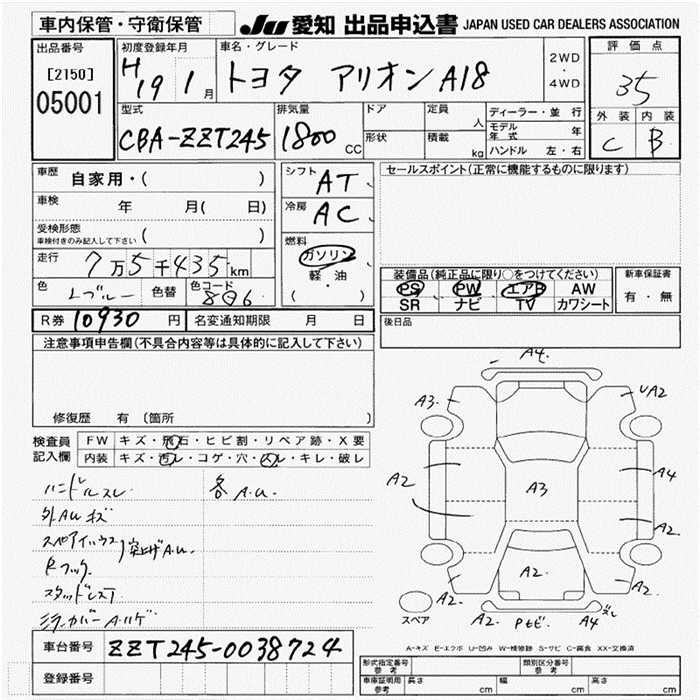 車内保管・守衛保管
JU 愛知 出品申込書 JAPAN USED CAR DEALERS ASSOCIATION
出品番号
[2150]
05001
初度登録年月
H 19 1 月
車名・グレード
トヨタ アリオン A18
2WD
・
4WD
評価点
35
外装 内装
C B
型式
CBA-ZZT245
排気量
1800 CC
ドア
形状
定員 人
積載 kg
ディーラー・並行
モデル年式 年
ハンドル 左・右
車歴 自家用・( )
車検 年 月( 日)
受検形態
車検付きのみ記入して下さい ( )
走行 7万5千435km
色 Lブルー 色替 色コード 8Q6
シフト AT
冷房 AC
燃料
ガソリン
軽・油
( )
セールスポイント(正常に機能するものに限ります)
装備品(純正品に限り○をつけてください)
PS PW エアB AW
SR ナビ TV カワシート
新車保証書
有・無
R券 10930 円 名変通知期限 月 日
後日品
注意事項申告欄(不具合内容等は具体的に記入して下さい)
修復歴 有 〔箇所
検査員記入欄
FW キズ・飛石・ヒビ割・リペア跡・X要
内装 キズ・汚レ・コゲ・穴・スレ・キレ・破レ
ハンドルスレ 各A.U.
外AUキズ
スペアイハウス
突上げA.U.
Rフック
スタッドレスT
ミラーカバーA.ハゲ
車台番号 ZZT245-0038724
登録番号
A4
A3
UA2
A2
A3
A4
A2
A2
A2
A2
スペア
PモビA4ズレ
A-キズ E-エクボ U-凹み W-補修跡 S-サビ C-腐食 XX-交換済
形式指定番号
参考
類別区分番号
参考
車庫証明用
参考
長さ cm 幅 cm 高さ cm